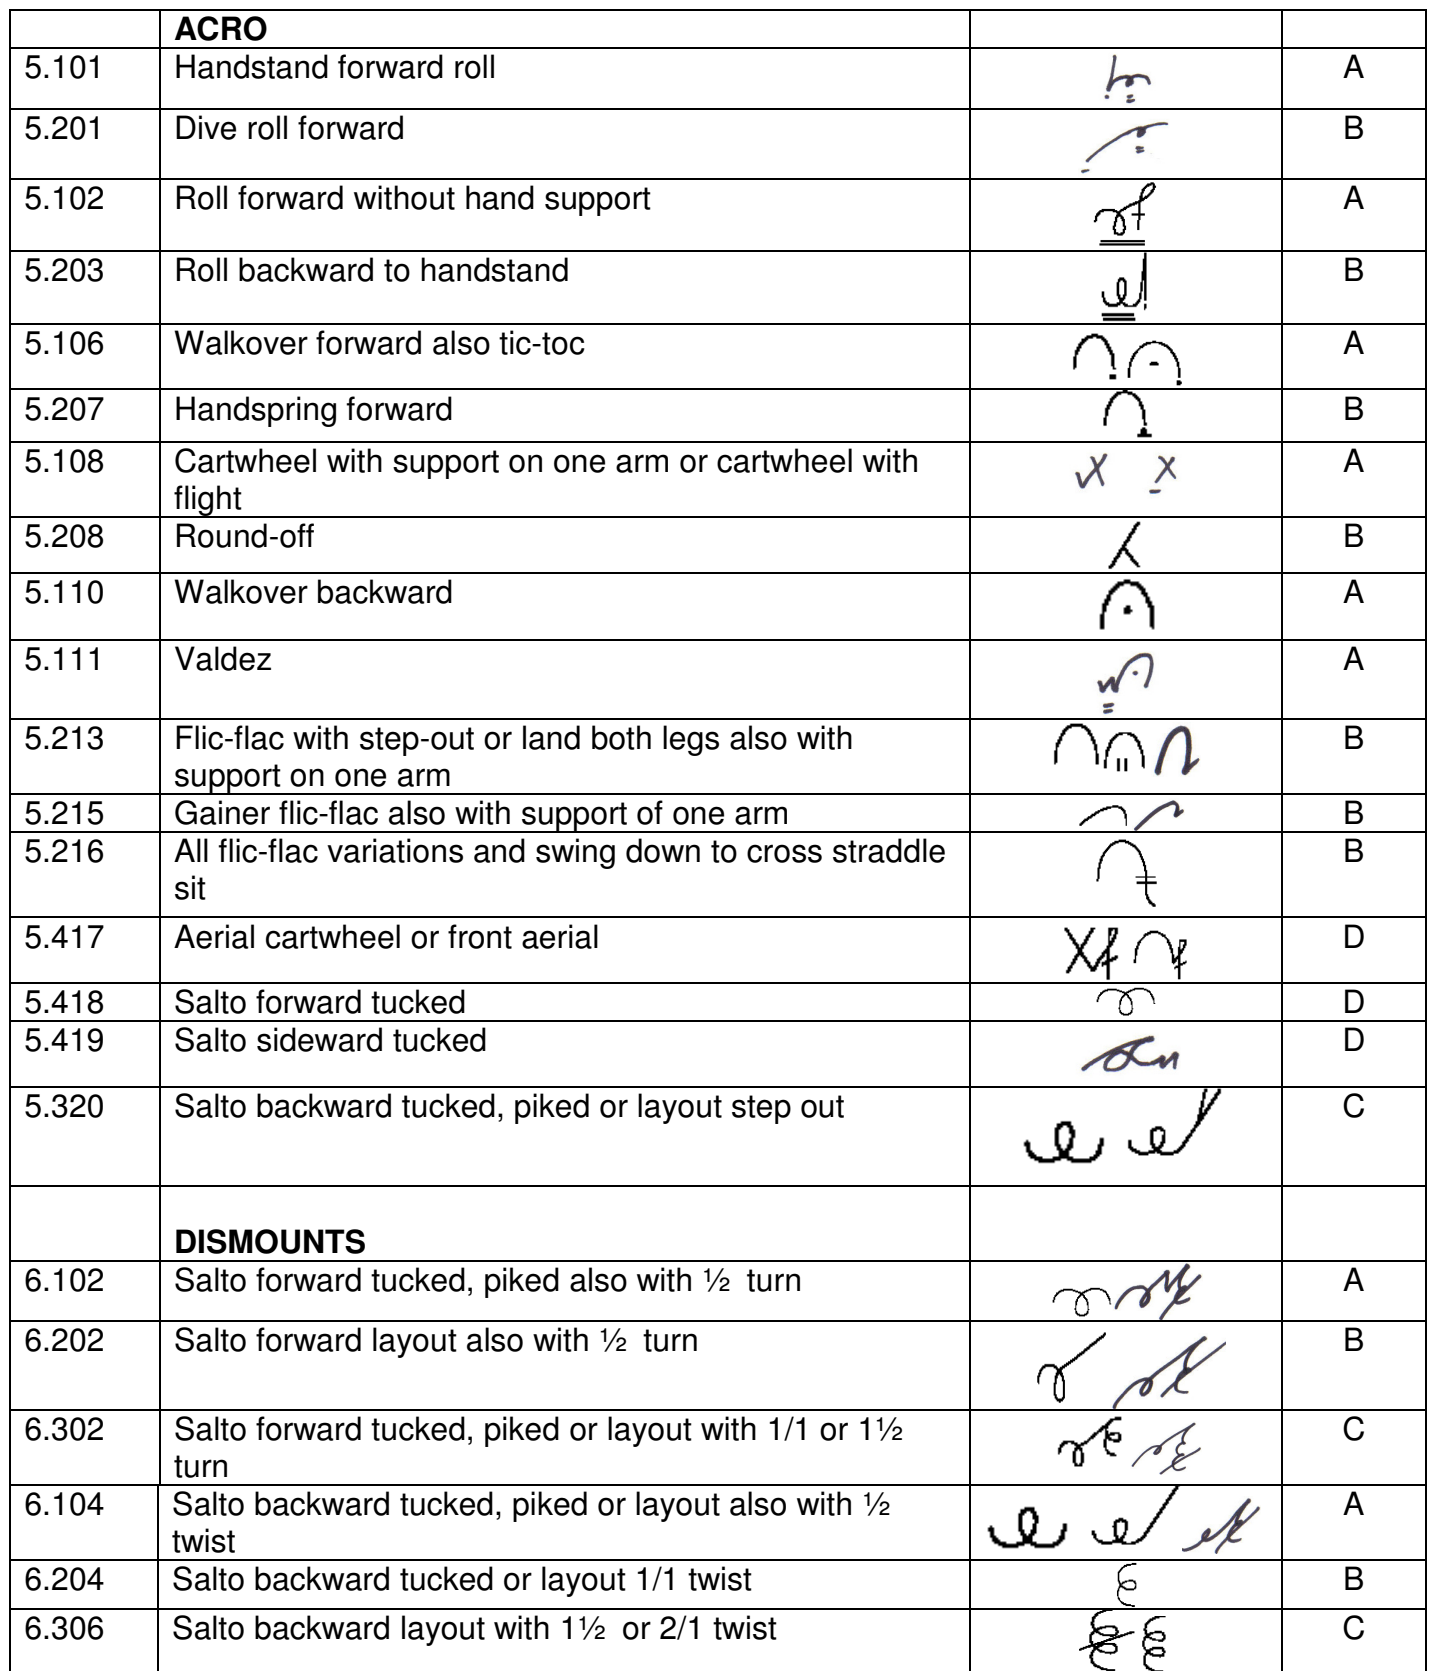 ACRO
5.101 Handstand forward roll A
5.201 Dive roll forward B
5.102 Roll forward without hand support A
5.203 Roll backward to handstand B
5.106 Walkover forward also tic-toc A
5.207 Handspring forward B
5.108 Cartwheel with support on one arm or cartwheel with A
flight
5.208 Round-off B
5.110 Walkover backward A
5.111 Valdez A
5.213 Flic-flac with step-out or land both legs also with B
support on one arm
5.215 Gainer flic-flac also with support of one arm B
5.216 All flic-flac variations and swing down to cross straddle B
sit
5.417 Aerial cartwheel or front aerial D
5.418 Salto forward tucked D
5.419 Salto sideward tucked D
5.320 Salto backward tucked, piked or layout step out C
DISMOUNTS
6.102 Salto forward tucked, piked also with ½ turn A
6.202 Salto forward layout also with ½ turn B
6.302 Salto forward tucked, piked or layout with 1/1 or 1½ C
turn
6.104 Salto backward tucked, piked or layout also with ½ A
twist
6.204 Salto backward tucked or layout 1/1 twist B
6.306 Salto backward layout with 1½ or 2/1 twist C